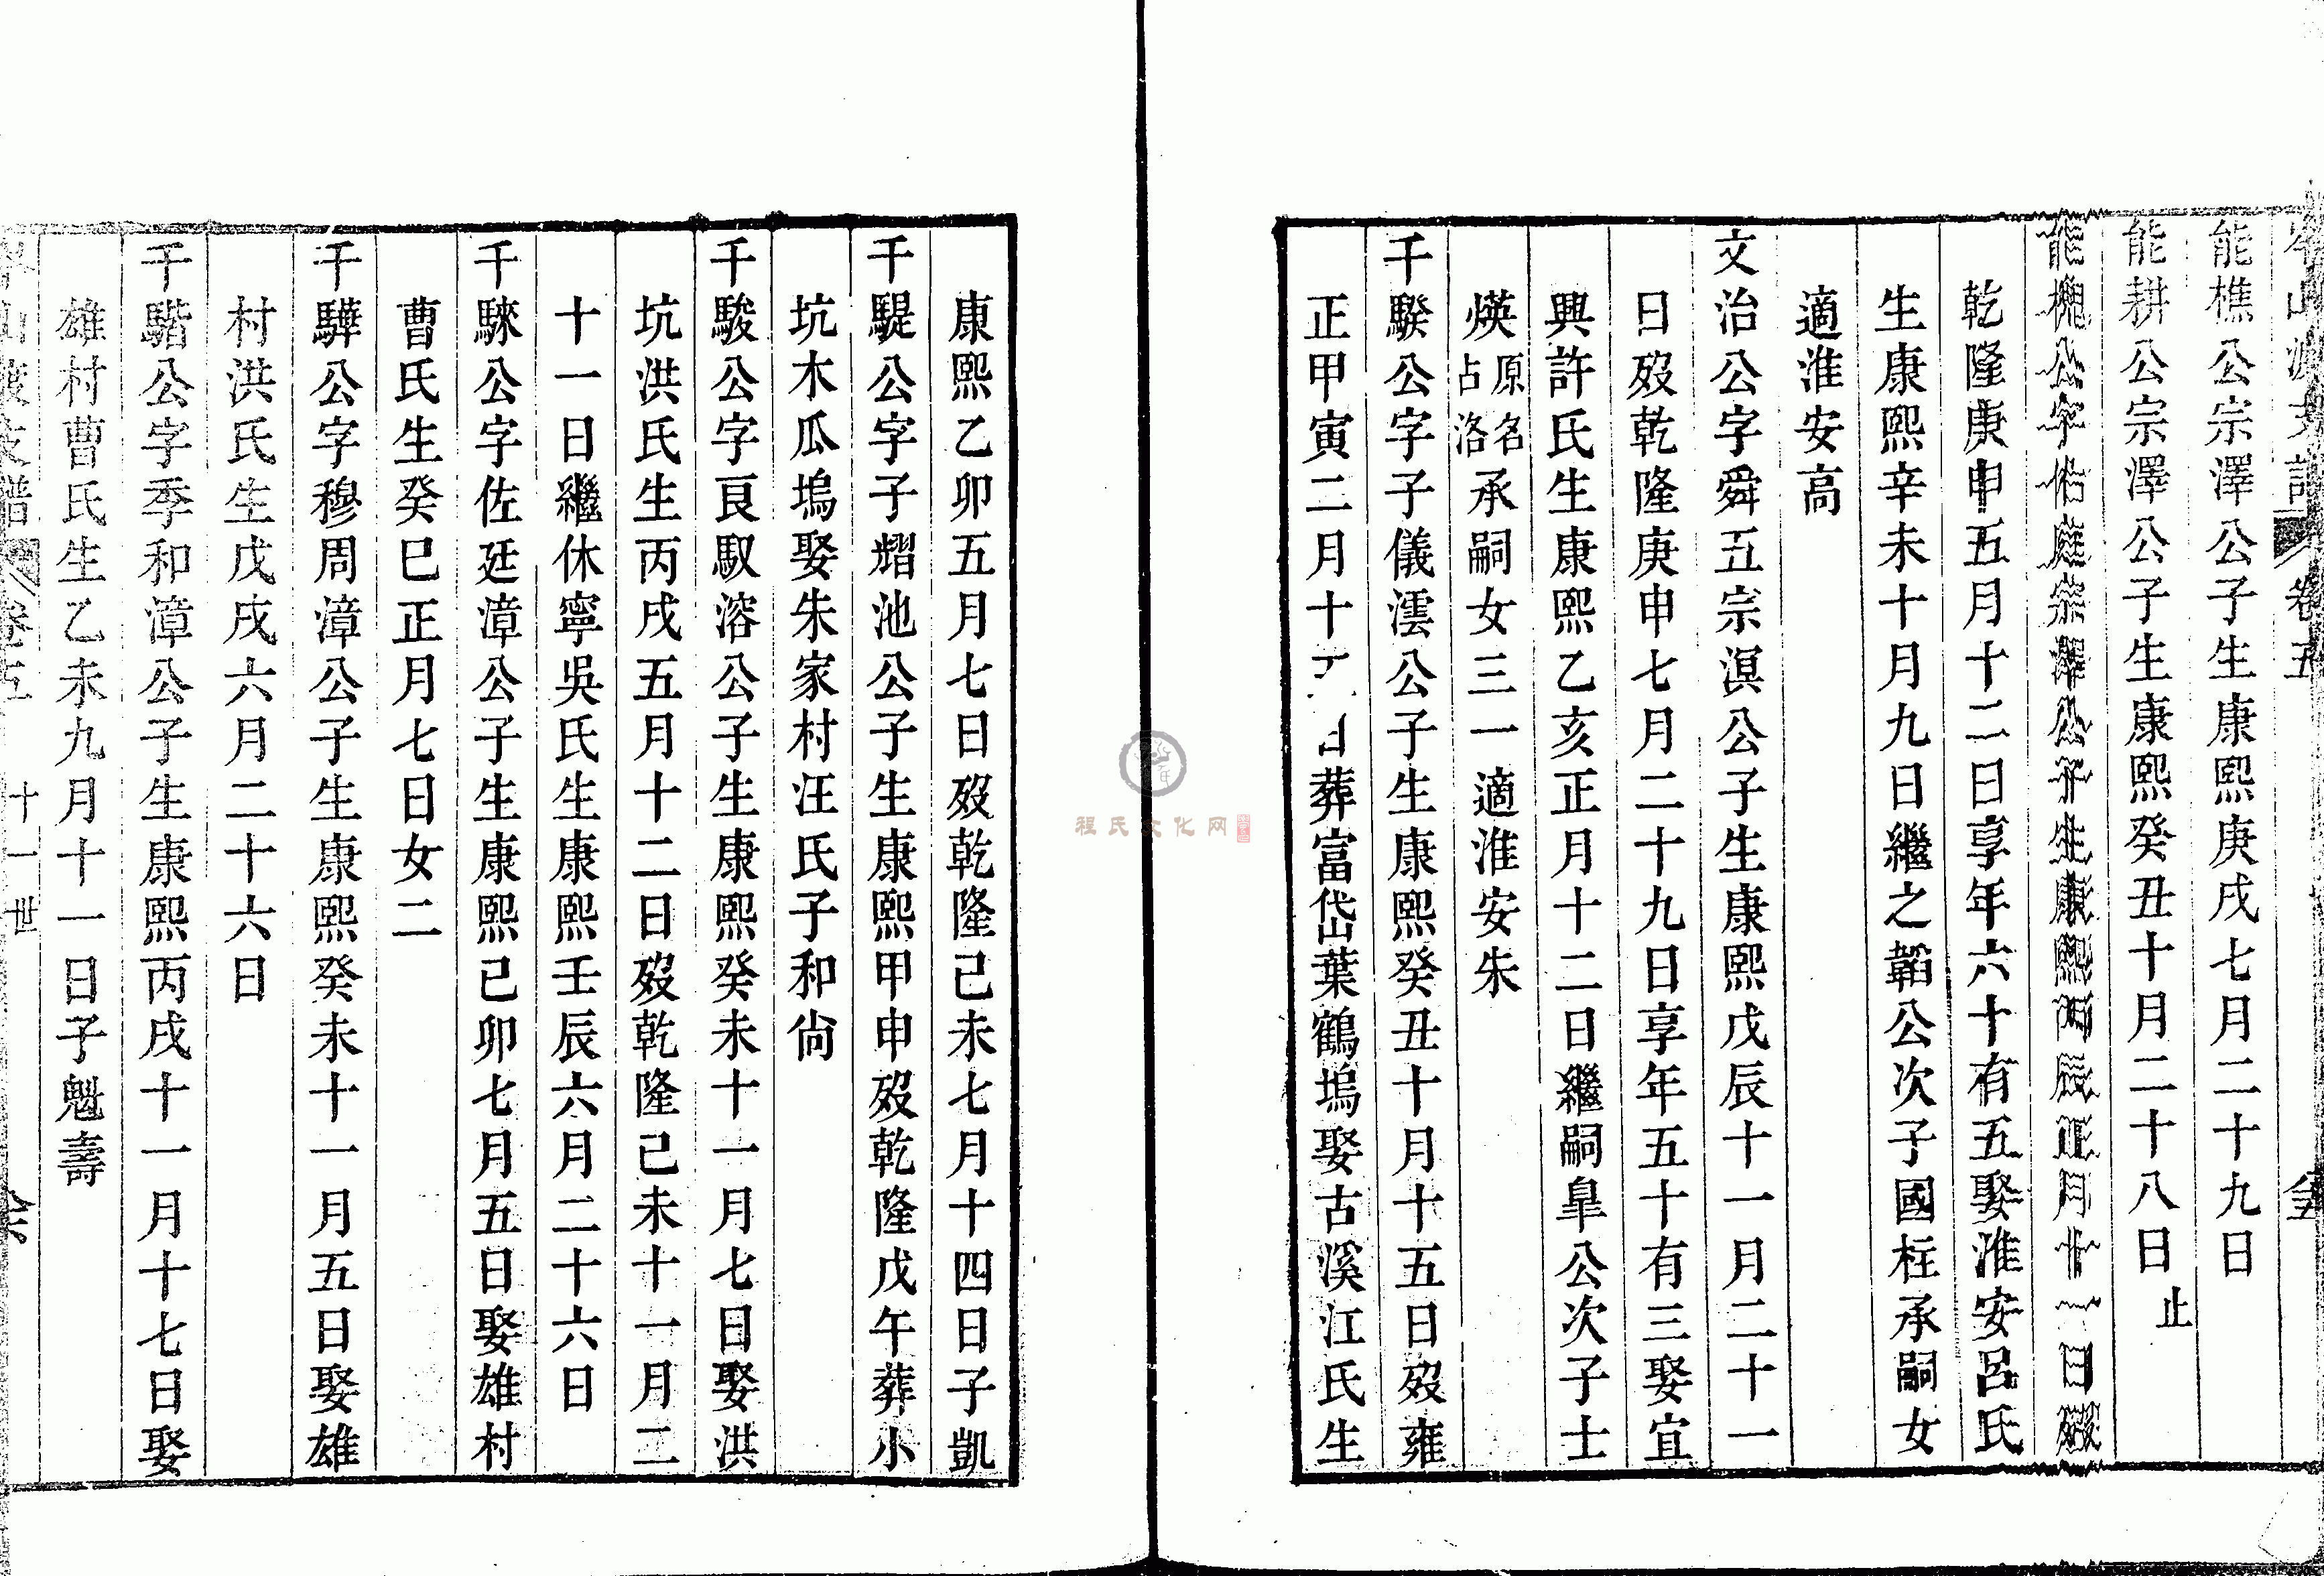 卷五
能樵公宗澤公子生康熙庚戌七月二十九日
能耕公宗澤公子生康熙癸丑十月二十八日止
能槐公字佑庭宗澤公子生康熙丙辰正月十一日歿
乾隆庚申五月十二日享年六十有五娶淮安呂氏
生康熙辛未十月九日繼之韜公次子國柱承嗣女
適淮安高
文治公字舜五宗溟公子生康熙戊辰十一月二十一
日歿乾隆庚申七月二十九日享年五十有三娶宜
興許氏生康熙乙亥正月十二日繼嗣臯公次子士
煐原名占洛承嗣女三一適淮安朱
千騤公字子儀澐公子生康熙癸丑十月十五日歿雍
正甲寅二月十日葬富岱葉鶴塢娶古溪江氏生
康熙乙卯五月七日歿乾隆己未七月十四日子凱
千騠公字子熠池公子生康熙甲申歿乾隆戊午葬小
坑木瓜塢娶朱家村汪氏子和尙
千駿公字良馭溶公子生康熙癸未十一月七日娶洪
坑洪氏生丙戌五月十二日歿乾隆己未十一月二
十一日繼休寧吳氏生康熙壬辰六月二十六日
千騋公字佐廷漳公子生康熙己卯七月五日娶雄村
曹氏生癸巳正月七日女二
千驊公字穆周漳公子生康熙癸未十一月五日娶雄
村洪氏生戊戌六月二十六日
千騮公字季和漳公子生康熙丙戌十一月十七日娶
雄村曹氏生乙未九月十一日子魁壽
支譜 卷五 十一世
程氏文化网